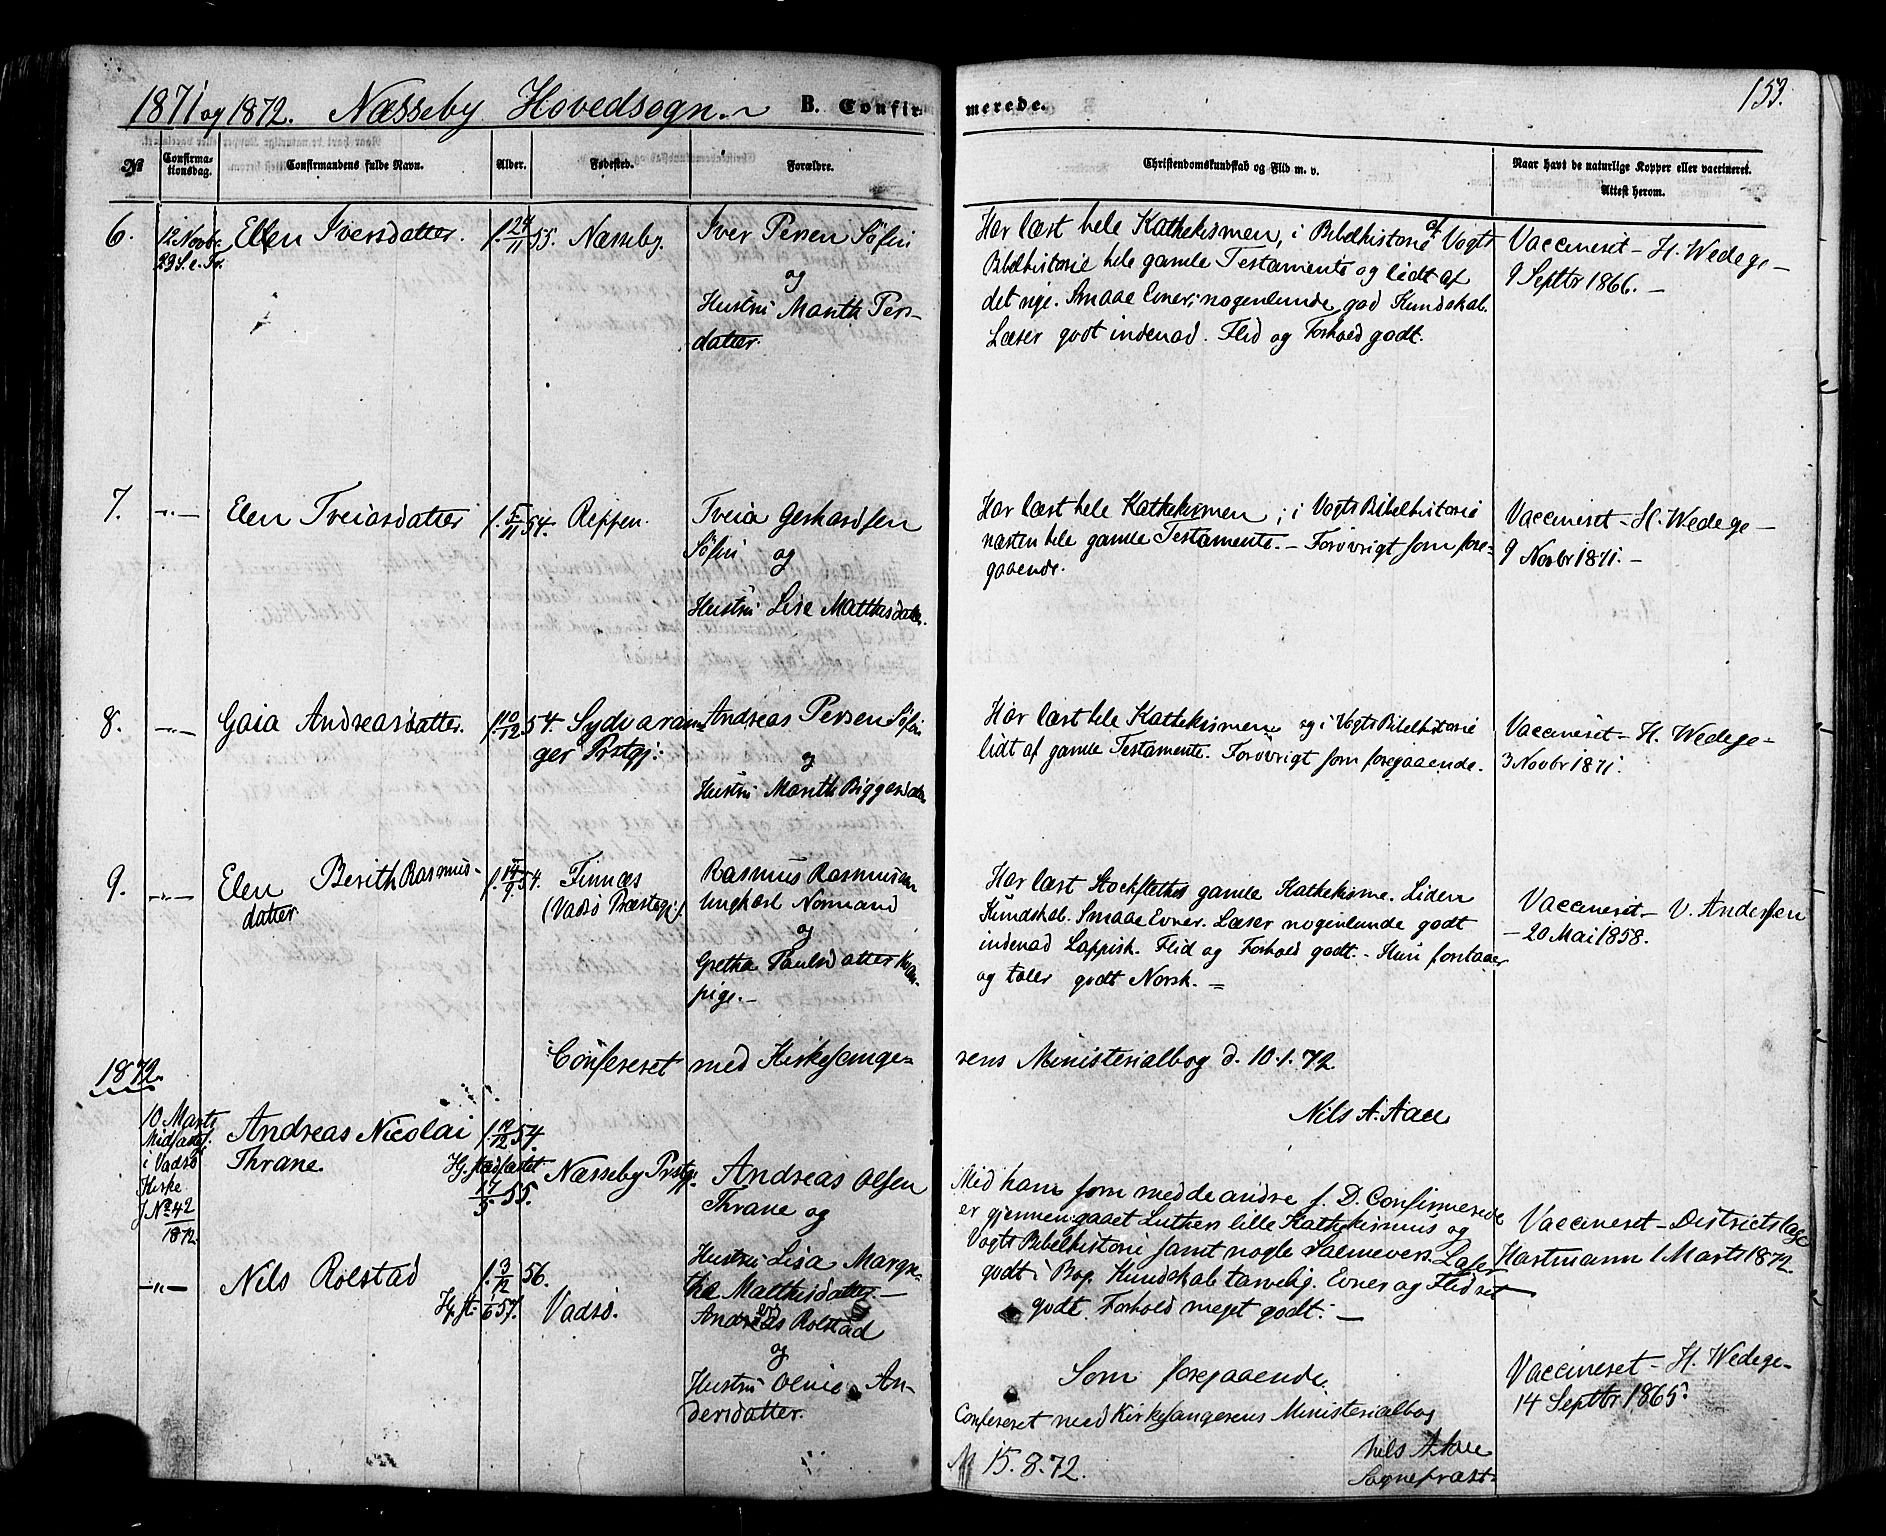 153.
1871 og 1872. Næsseby Hovedsogn. B. Confirmerede.
№
Confirma-
tionsdag.
Confirmandens fulde Navn.
Alder.
Fødested.
Forældre.
Christendomskundskab og Flid m. v.
Naar havt de naturlige Kopper eller vaccineret.
Attest herom.
6.
12 Novbr
23 S. e. Tr.
Ellen Iversdatter.
f. 24/11 55.
Næsseby.
Iver Persen Søfin
og
Hustru Marith Pers-
datter.
Har læst hele Kathekismen, i Bibelhistorie af Vogts
Bibelhistorie hele gamle Testamente og lidt af
det nye. Smaae Evner; nogenlunde god Kundskab.
Læser godt indenad. Flid og Forhold godt.
Vaccineret – H. Wedege –
9 Septbr 1866. –
7.
–"–
Elen Iveiarsdatter
f. 5/11 54.
Reppen.
Iveia Gerhardsen
Søfin og
Hustru Lise Matthisdatter.
Har læst hele Kathekismen; i Vogts Bibelhistorie
næsten hele gamle Testamente. – Forøvrigt som fore-
gaaende.
Vaccineret – H. Wedege –
9 Novbr 1871. –
8.
–"–
Gaia Andreasdatter.
f. 10/12 54.
Sydvaran-
ger Prstgj:
Andreas Persen Søfin
og
Hustru Marith Biggasdatter
Har læst hele Kathekismen og i Vogts Bibelhistorie
lidt af gamle Testamente. Forøvrigt som foregaaende.
Vaccineret – H. Wedege –
3 Novbr 1871.
9.
–"–
Elen Berith Rasmus-
datter
f. 14/9 54.
Finnæs
(Vadsø Præstegj:)
Rasmus Rasmusen
Ungkarl Normand
og
Gretha Paulsdatter
pige. –
Har læst Stockfleths gamle Kathekisme. Liden
Kundskab. Smaae Evner. Læser nogenlunde godt
indenad Lappisk. Flid og Forhold godt. – Hun forstaaer
og taler godt Norsk. –
Vaccineret – V. Andersen
– 20 Mai 1858.
Confereret med Kirkesange-
rens Ministerialbog d. 10.1.72
Nils A. Aall
1872.
10 Marts
Midfastes.
i Vadsø
Kirke
J No 42
1872
Andreas Nicolai
Thrane.
f. 19/12 54.
Hj. stadfæstet
17/5 55.
Næsseby Prstgj.
Andreas Olsen
Thrane og
Hustru Lisa Margre-
tha Matthisdatter. –
Med ham som med de andre f. D. Confirmerede
er gjennemgaaet Luthers lille Kathekismus og
Vogts Bibelhistorie samt nogle Salmevers. Læser
godt i Bog. Kundskab tarvelig. Evner og Flid ret
godt. Forhold meget godt. –
Vaccineret – Districtslæge
Hartmann 1 Marts 1872.
–"–
Nils Rolstad
f. 3/12 56.
Hj. st. 1/6 57.
Vadsø.
Anders Rolstad
og
Hustru Oline An-
dersdatter.
Som foregaaende.
Vaccineret – H. Wedege –
14 Septbr 1865.
Confereret med Kirkesangerens Ministerialbog
15.8.72.
Nils A. Aall
Sognepræst